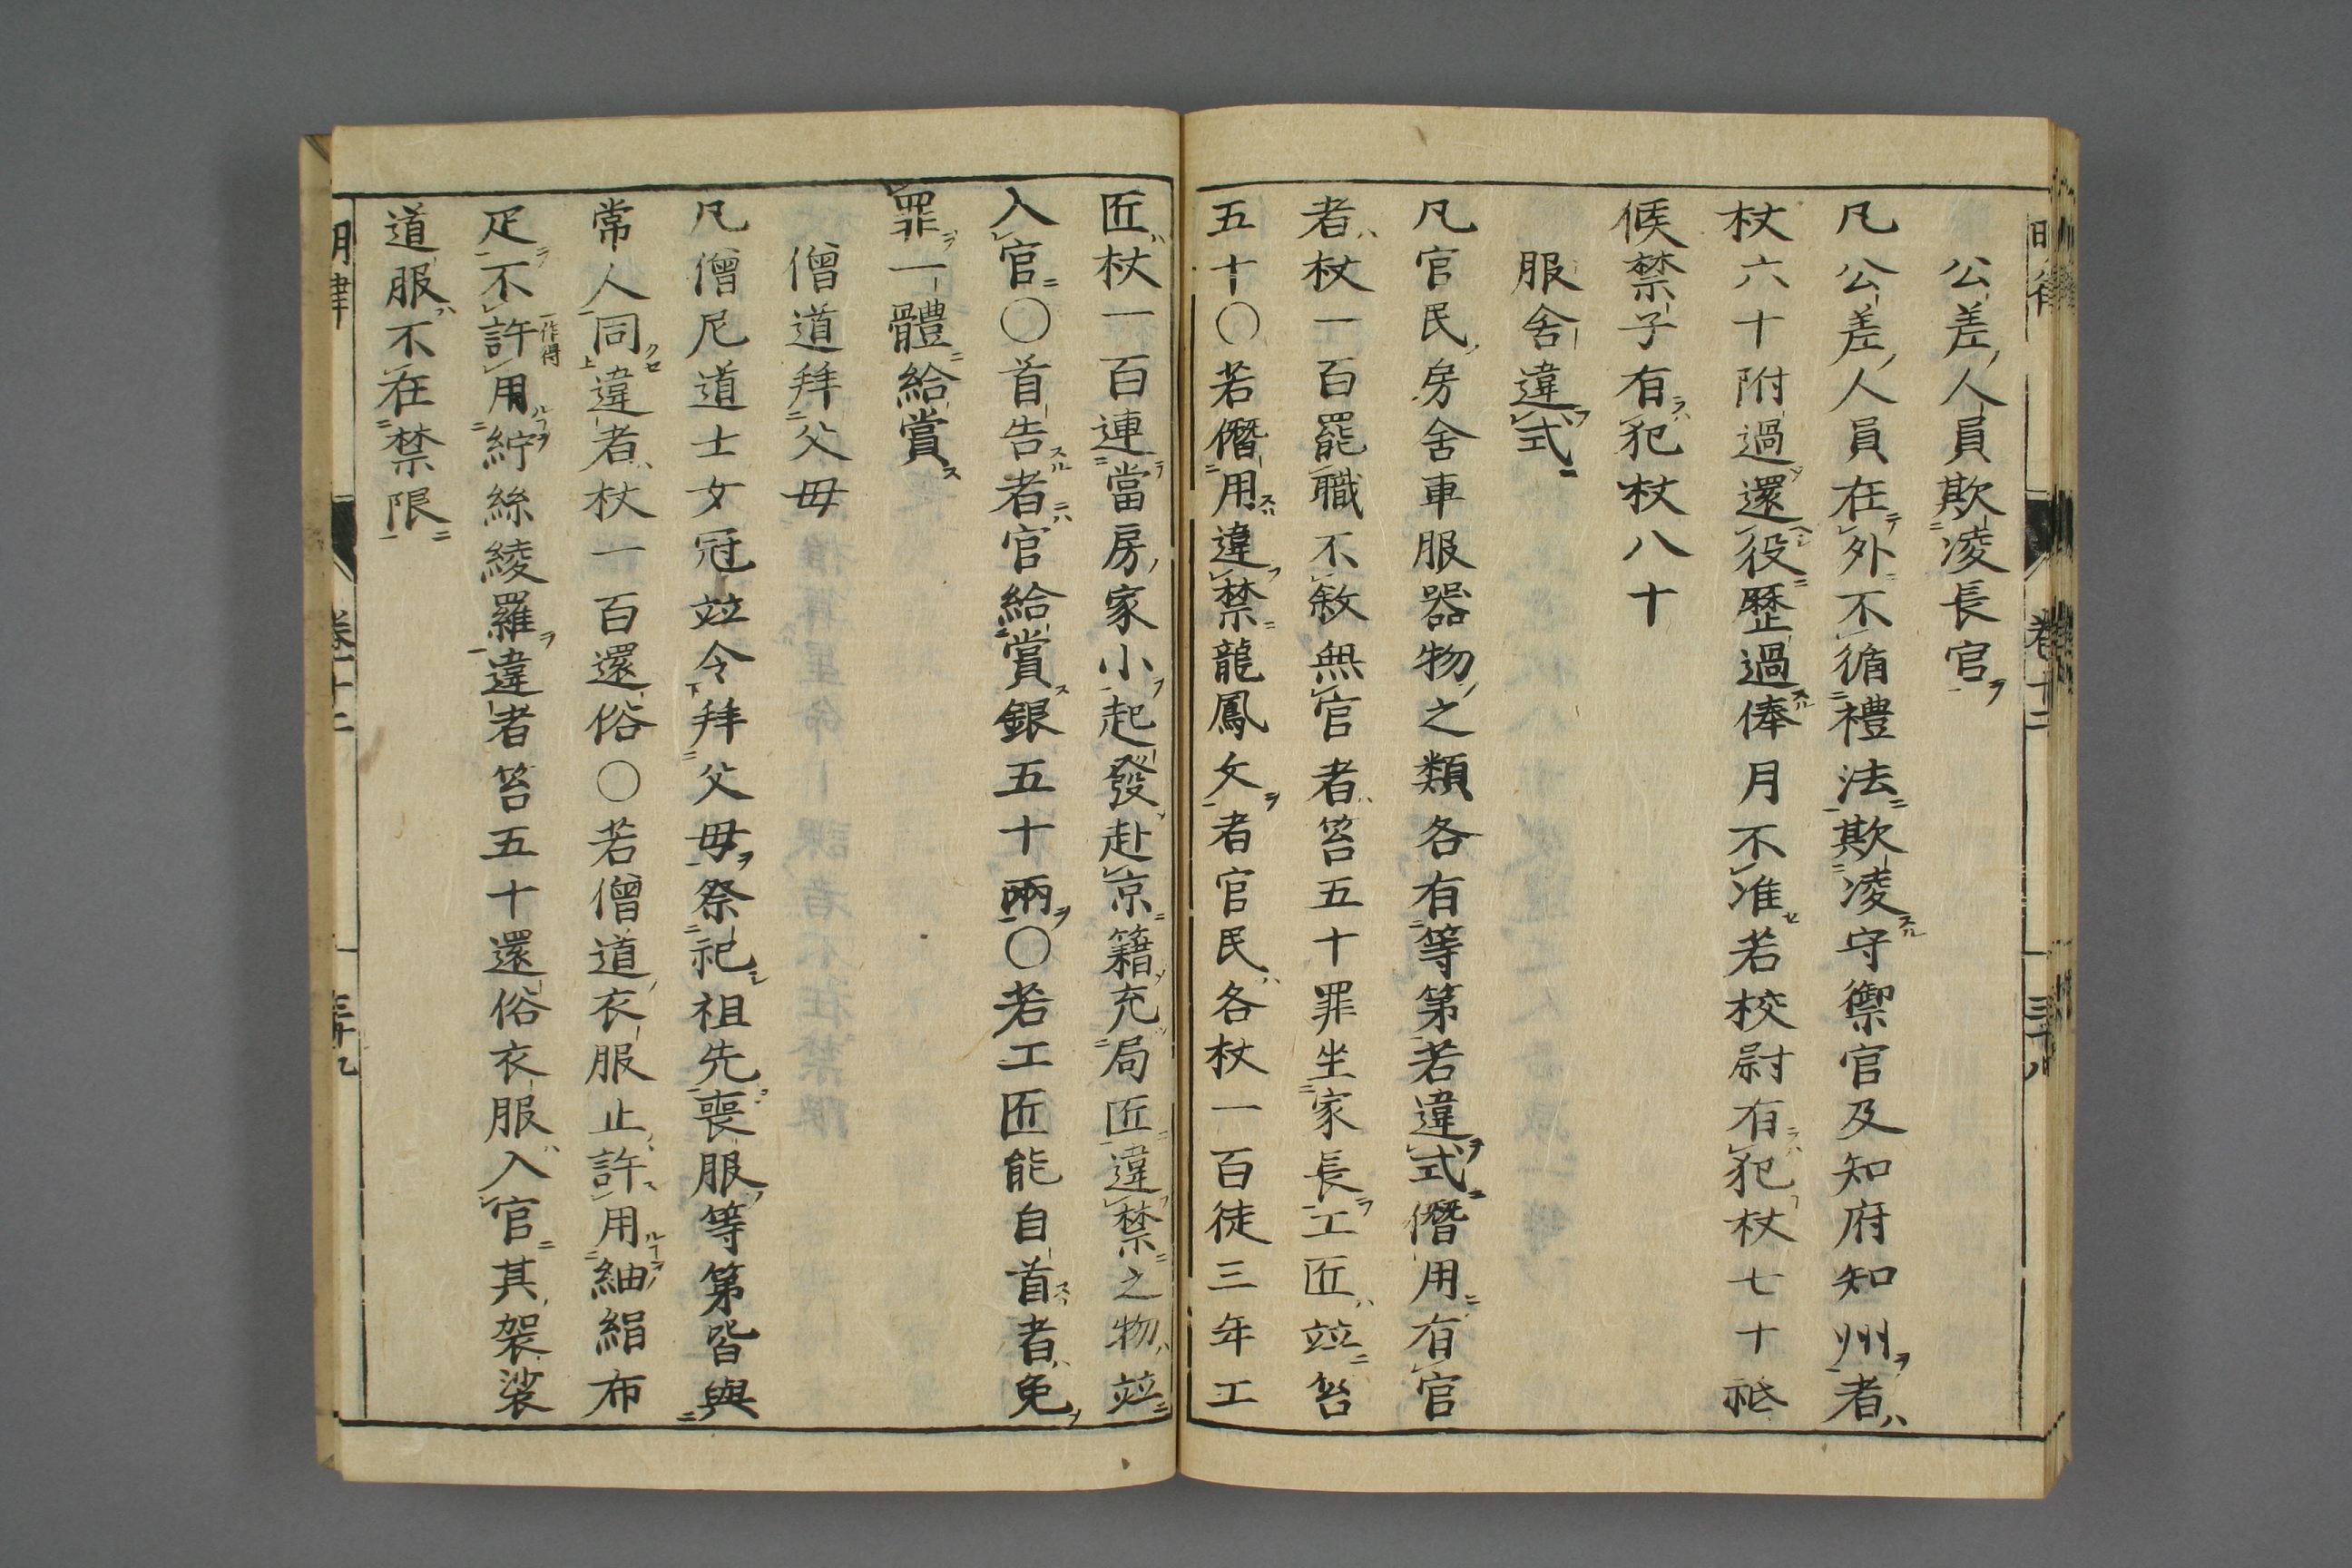 公差人員欺凌長官
凡公差人員在外不循禮法欺凌守禦官及知府知州者
杖六十附過還役歷過俸月不准若校尉有犯杖七十祗
候禁子有犯杖八十
服舍違式
凡官民房舍車服器物之類各有等第若違式僭用有官
者杖一百罷職不敘無官者笞五十罪坐家長工匠竝笞
五十〇若僭用違禁龍鳳文者官民各杖一百徒三年工
匠杖一百連當房家小起發赴京籍充局匠違禁之物竝
入官〇首告者官給賞銀五十兩〇若工匠能自首者免
罪一體給賞
僧道拜父母
凡僧尼道士女冠竝令拜父母祭祀祖先喪服等第皆與
常人同違者杖一百還俗〇若僧道衣服止許用紬絹布
疋不許一作得用紵絲綾羅違者笞五十還俗衣服入官其袈裟
道服不在禁限
明律 卷十二